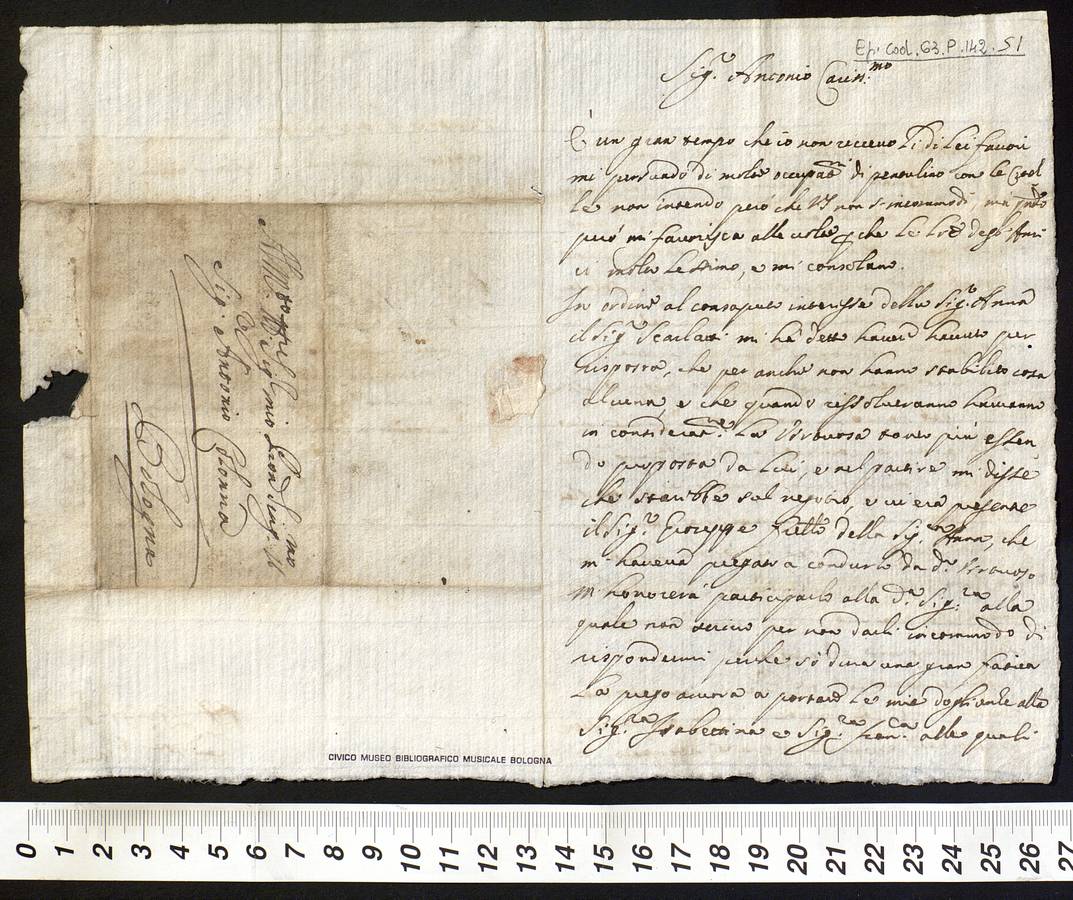 Ep. Cod. 63. P. 142. 51
Sig.r Antonio Cariss.mo
È un gran tempo che io non ricevo Li di Lei favori
mi persuado di molte occupat.ni di pensulino con le Cod
le non intendo però che VS non s'incommodi, ma
però mi favorisca alle volte che Le Lre degl'Ami
ci molto Lo stimo, e mi consolano.
In ordine al consaputo interesse della Sig.ra Anna
il Sig.r Scarlatti mi hà detto haver havuto per
risposta, che per anche non hanno stabilito cosa
alcuna, e che quando rissolveranno havranno
in considerat.ne La Virtuosa tanto più essen
do proposta da Lui, e nel partire mi disse
che starebbe sul negotio, e vi era presente
il Sig.r Gioseppe Frello della Sig.ra Anna, che
mi haveva pregato a condurlo da d.o Virtuoso
m'honorerà participarlo alla d.a Sig.ra alla
quale non scrivo per non darli incommodo di
rispondermi perche sò dura una gran fatica
La prego ancora a portare Le mie doglianze alla
Sig.ra Isabettina e Sig.ra Fran.ca alle quali
All' Sig.r Sig.r mio Pron Sing.mo Il
Sig. Antonio Colonna
Bologna
CIVICO MUSEO BIBLIOGRAFICO MUSICALE BOLOGNA
0 1 2 3 4 5 6 7 8 9 10 11 12 13 14 15 16 17 18 19 20 21 22 23 24 25 26 27